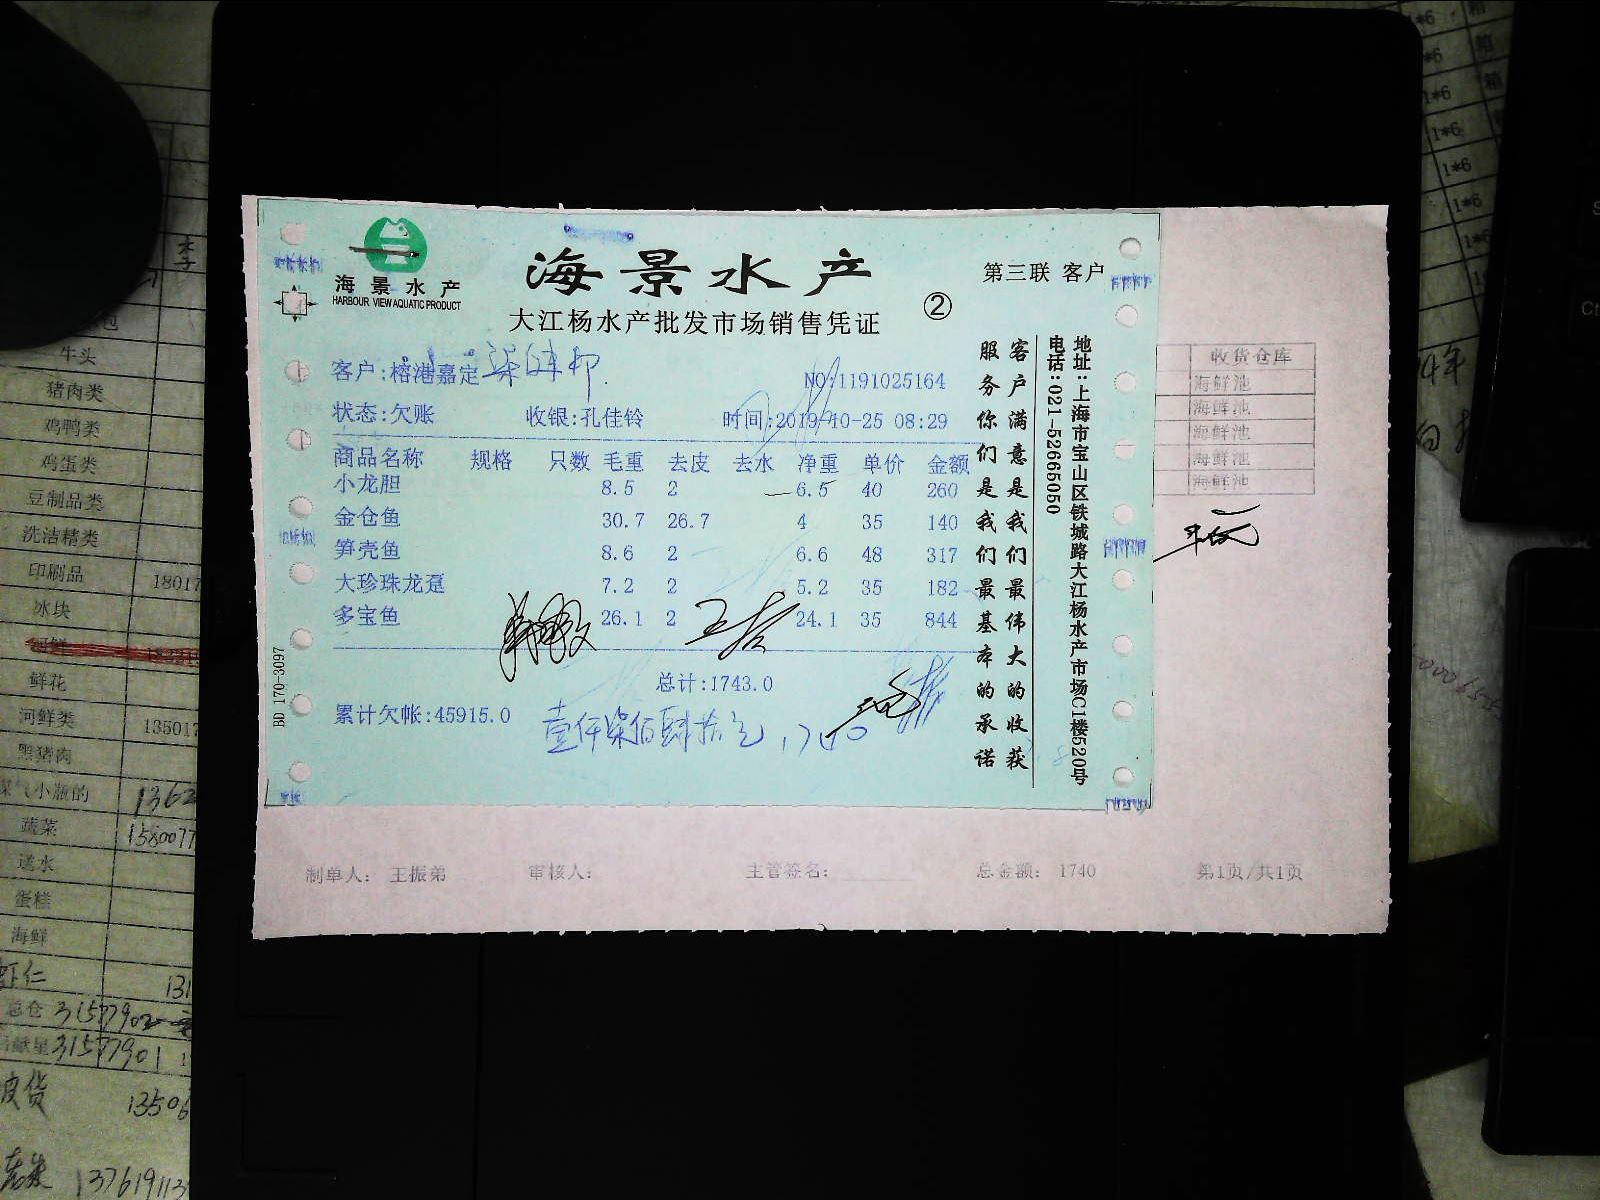 海景水产
HARBOUR VIEW AQUATIC PRODUCT
海景水产
大江杨水产批发市场销售凭证
②
第三联 客户
客户:榕港嘉定
NO:1191025164
状态:欠账 收银:孔佳铃 时间:2019-10-25 08:29
商品名称 规格 只数 毛重 去皮 去水 净重 单价 金额
小龙胆 8.5 2 6.5 40 260
金仓鱼 30.7 26.7 4 35 140
笋壳鱼 8.6 2 6.6 48 317
大珍珠龙趸 7.2 2 5.2 35 182
多宝鱼 26.1 2 24.1 35 844
总计:1743.0
累计欠帐:45915.0
壹仟柒佰肆拾元 1740
客户满意是我们最伟大的收获
服务你们是我们最基本的承诺
地址:上海市宝山区铁城路大江杨水产市场C1楼520号
电话:021-52665050
BD 170-3097
收货仓库
海鲜池
海鲜池
海鲜池
海鲜池
海鲜池
制单人: 王振弟 审核人: 主管签名: 总金额: 1740 第1页/共1页
李
牛头
猪肉类
鸡鸭类
鸡蛋类
豆制品类
洗洁精类
印刷品 18017
冰块
河鲜
鲜花
河鲜类 135017
黑猪肉
煤气小瓶的 1362
蔬菜 1580077
送水
蛋糕
海鲜
虾仁 131
总仓 31577902
31577901
皮货 13506
137619113
1*6
1*6
1*6
1*6
1*6
1*6
箱
箱